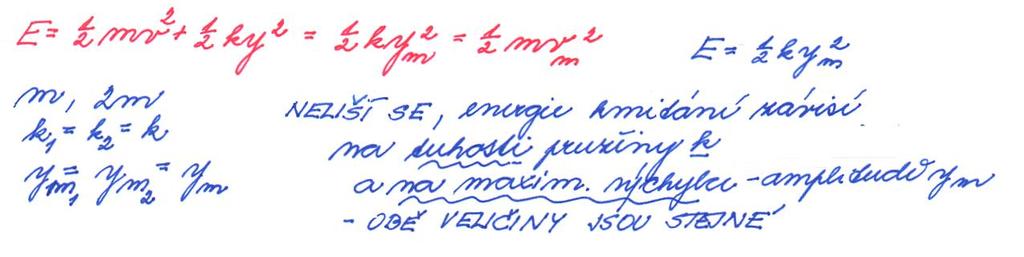 E = ½ mv² + ½ ky² = ½ ky_m² = ½ mv_m²
E = ½ ky_m²
m, 2m
k₁ = k₂ = k
y_m₁ = y_m₂ = y_m
NELIŠÍ SE, energie kmitání závisí
na tuhosti pružiny k
a na maxim. výchylce - amplitudě y_m
- OBĚ VELIČINY JSOU STEJNÉ